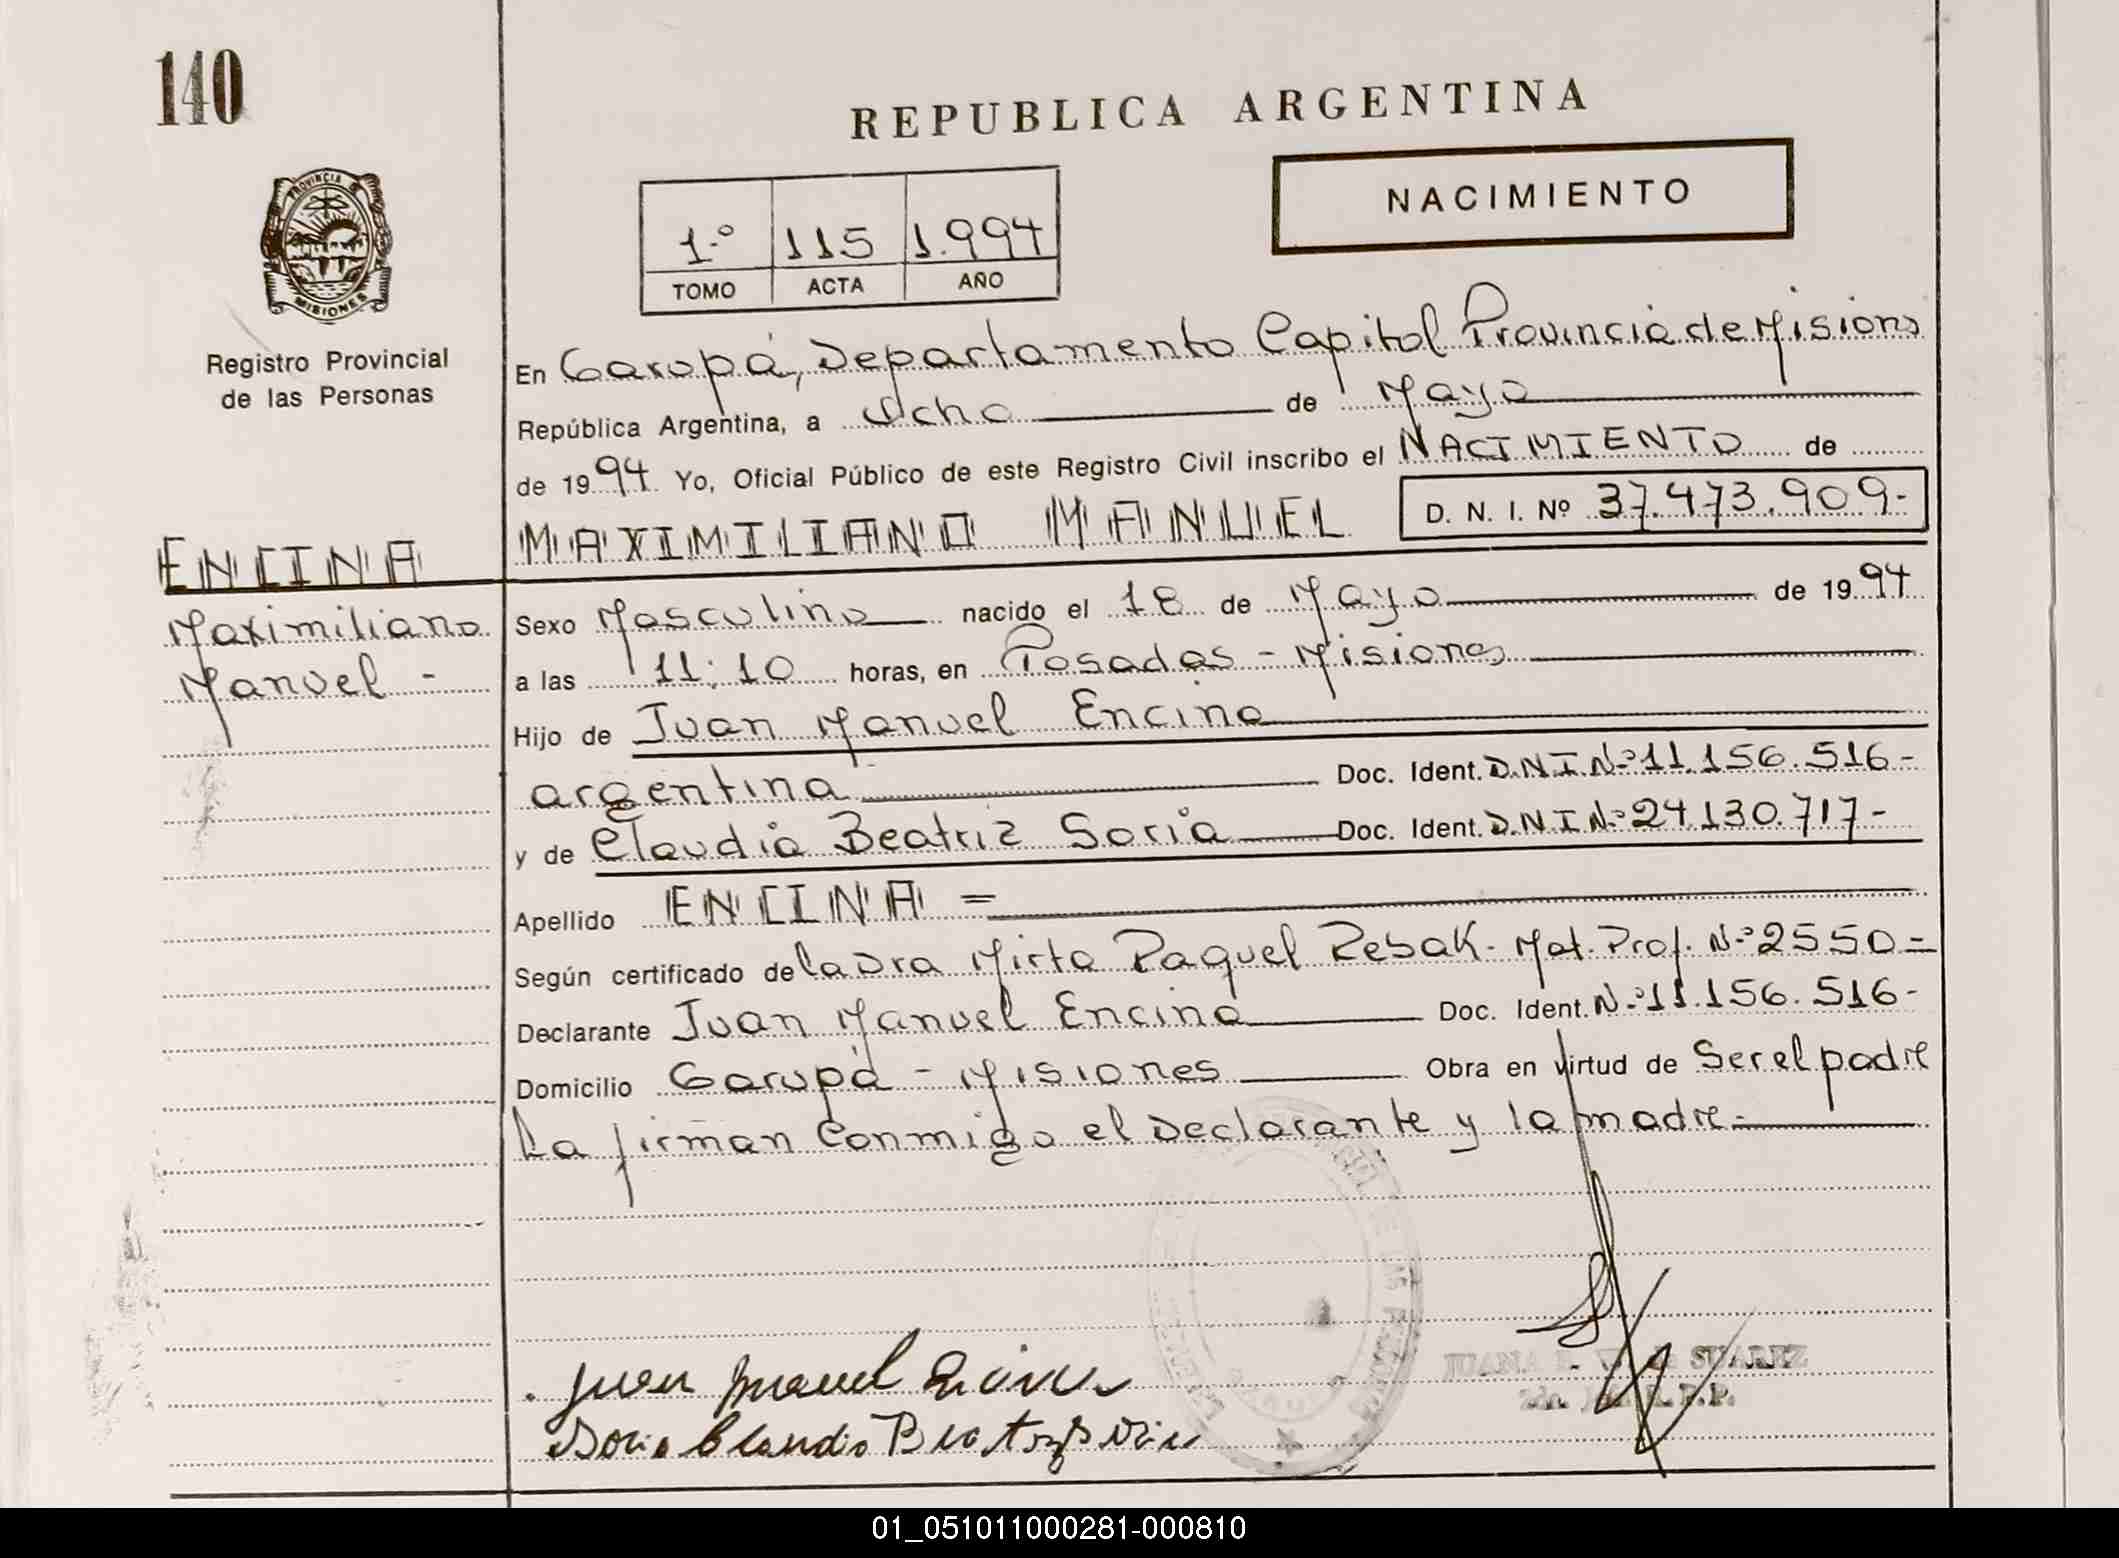 140
REPUBLICA ARGENTINA
NACIMIENTO
1.º 115 1.994
TOMO ACTA AÑO
PROVINCIA DE
MISIONES
Registro Provincial
de las Personas
En Garupá, Departamento Capital Provincia de Misiones
República Argentina, a Ocho de Mayo
de 1994 Yo, Oficial Público de este Registro Civil inscribo el NACIMIENTO de
MAXIMILIANO MANUEL D. N. I. Nº 37.473.909-
ENCINA
Maximiliano
Manuel -
Sexo Masculino nacido el 18 de Mayo de 1994
a las 11:10 horas, en Posadas - Misiones
Hijo de Juan Manuel Encina
argentina Doc. Ident. D.N.I.Nº 11.156.516-
y de Claudia Beatriz Soria Doc. Ident. D.N.I Nº 24.130.717-
Apellido ENCINA =
Según certificado de la Dra Mirta Raquel Rebak - Mat. Prof. Nº 2550=
Declarante Juan Manuel Encina Doc. Ident. Nº 11.156.516-
Domicilio Garupá - Misiones Obra en virtud de Ser el padre
La firman Conmigo el Declarante y la madre -
Juan Manuel Encina
Soria Claudia Beatriz
JUANA SUAREZ
R.P.P.
01_051011000281-000810